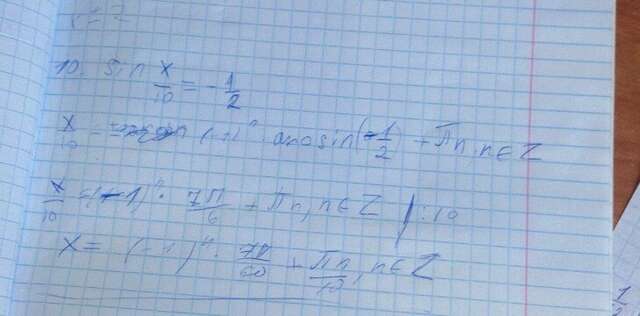 10. sin x/10 = -1/2
x/10 = (-1)ⁿ · arcsin(-1/2) + πn, n∈Z
x/10 = (-1)ⁿ · 7π/6 + πn, n∈Z | :10
x = (-1)ⁿ · 7π/60 + πn/10, n∈Z